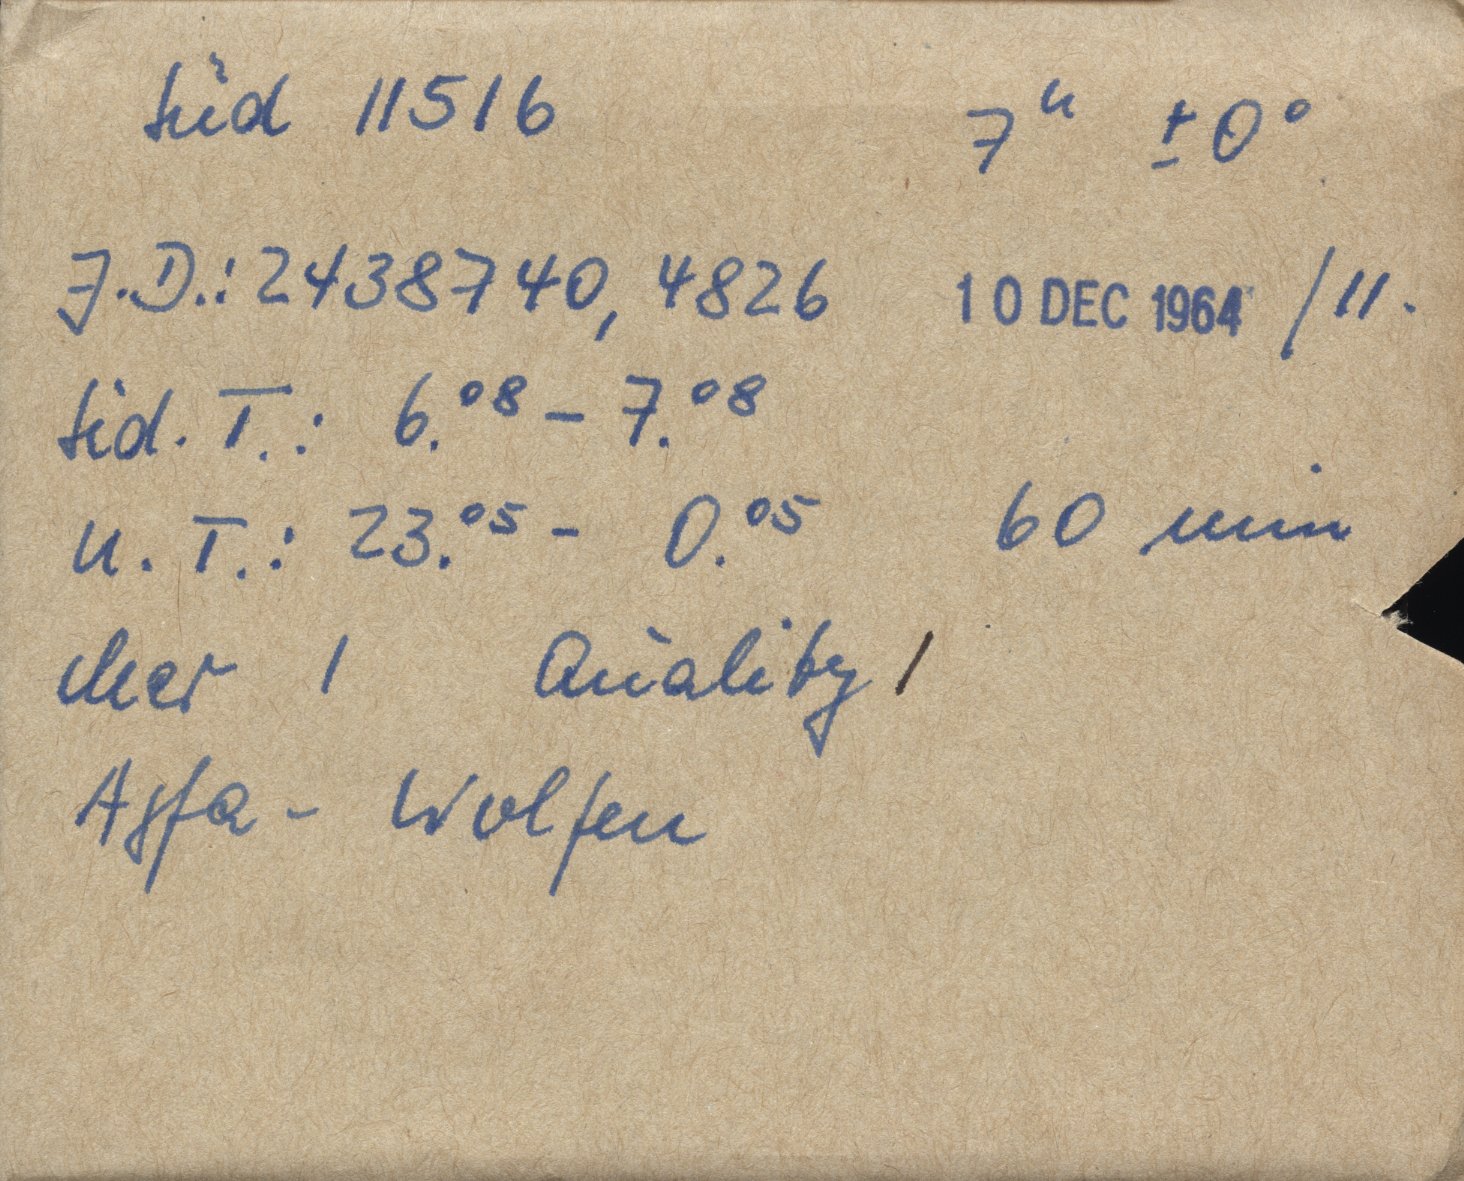 Süd 11516 7ʰ ±0°
J.D.: 2438740,4826 10 DEC 1964 /11.
Sid. T.: 6.⁰⁸ – 7.⁰⁸
U. T.: 23.⁰⁵ – 0.⁰⁵ 60 min
1 Quality 1
Agfa - Wolfen